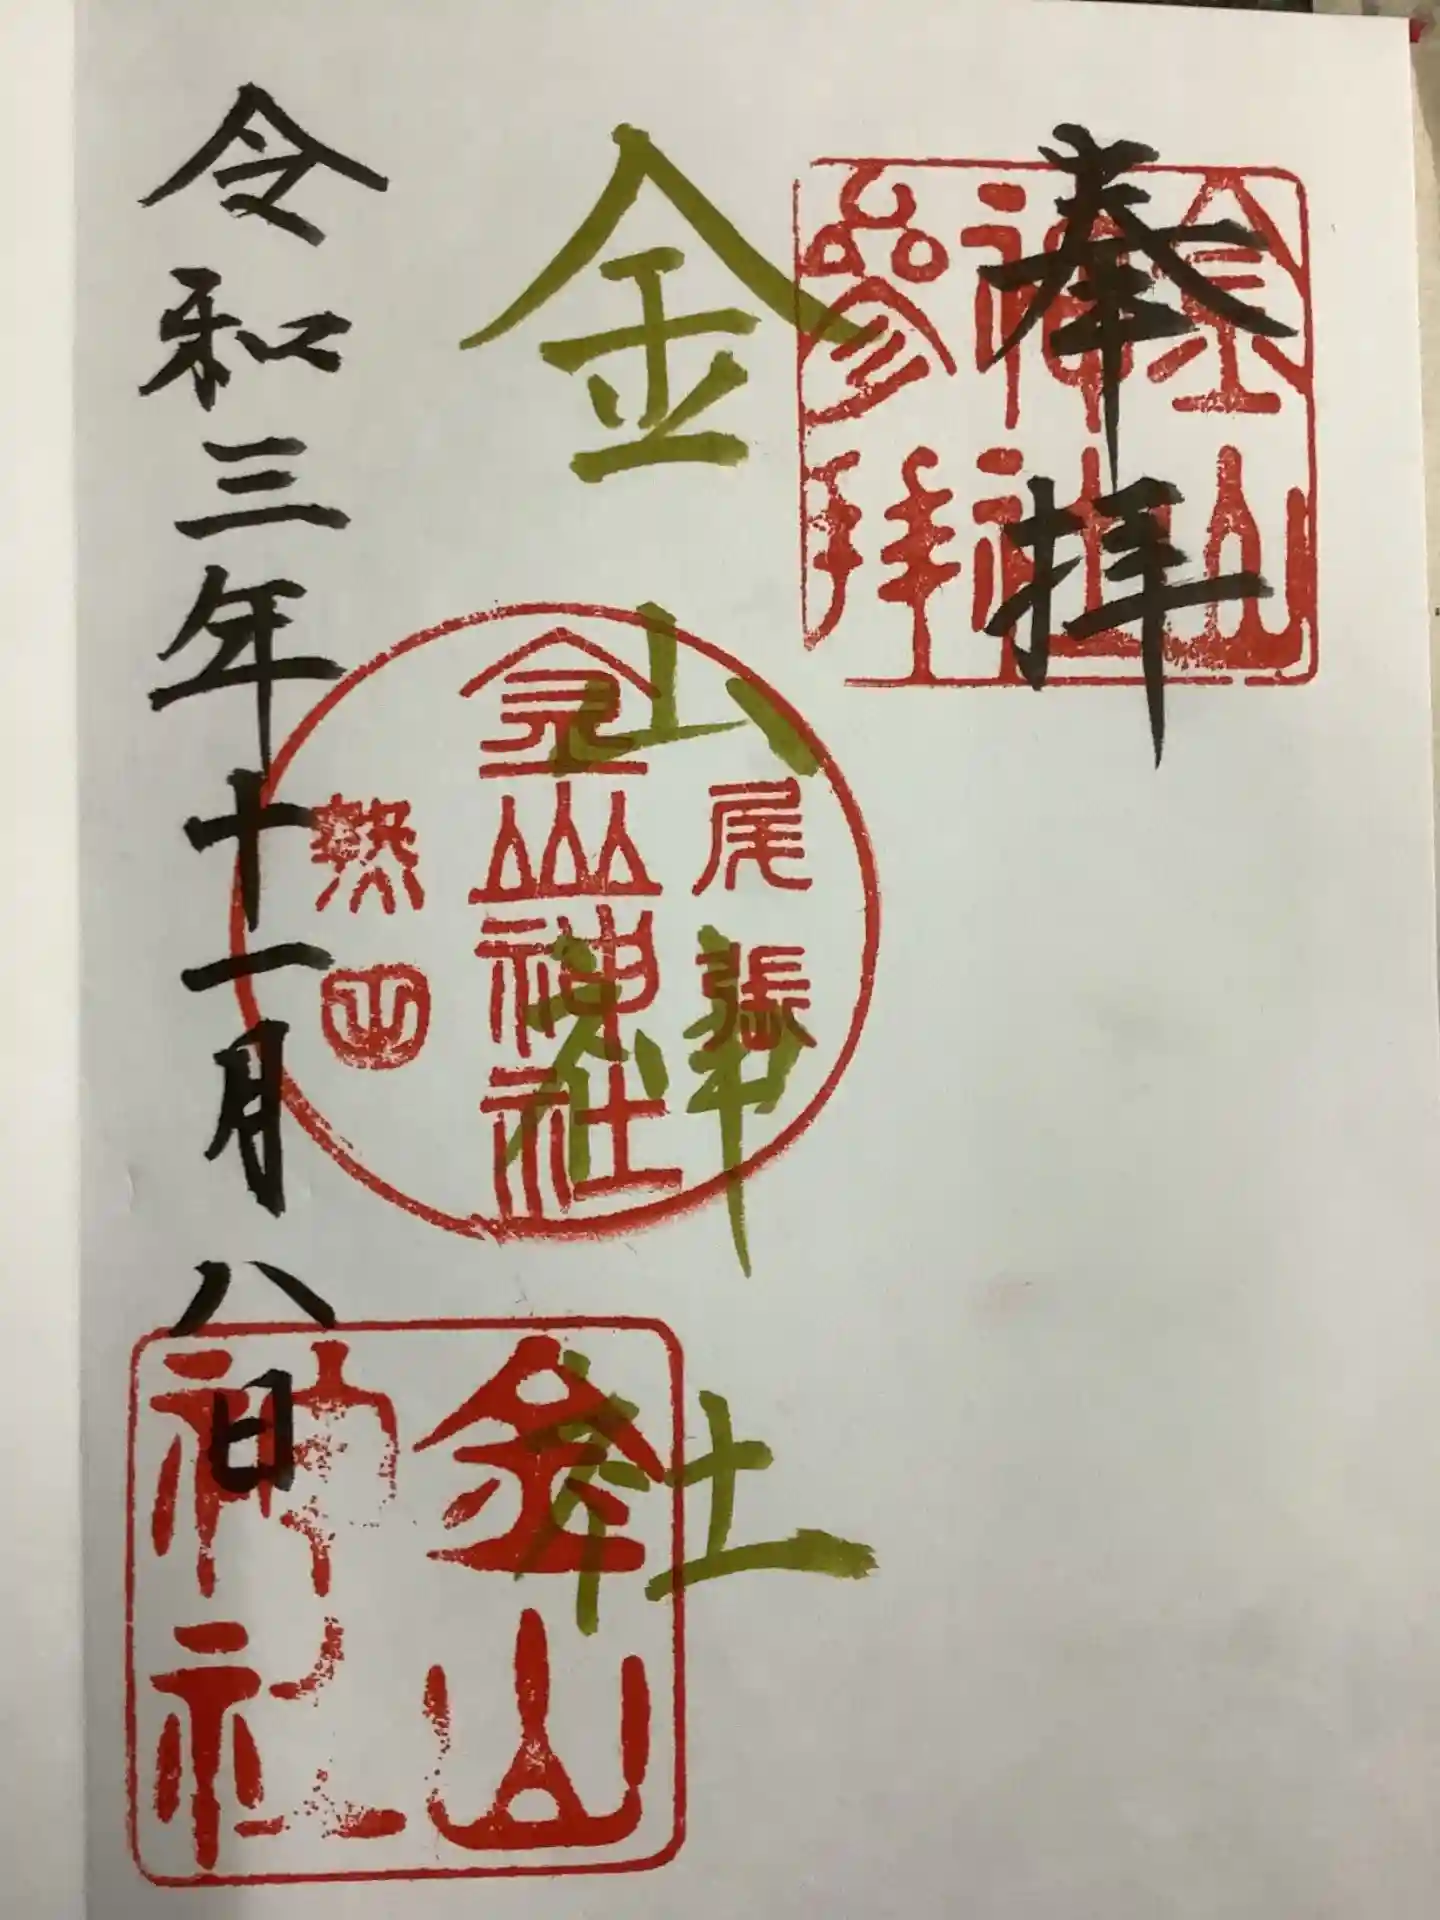 奉拝
金山神社参拝
金山神社
尾張
金山神社
熱田
令和三年十一月八日
金山神社